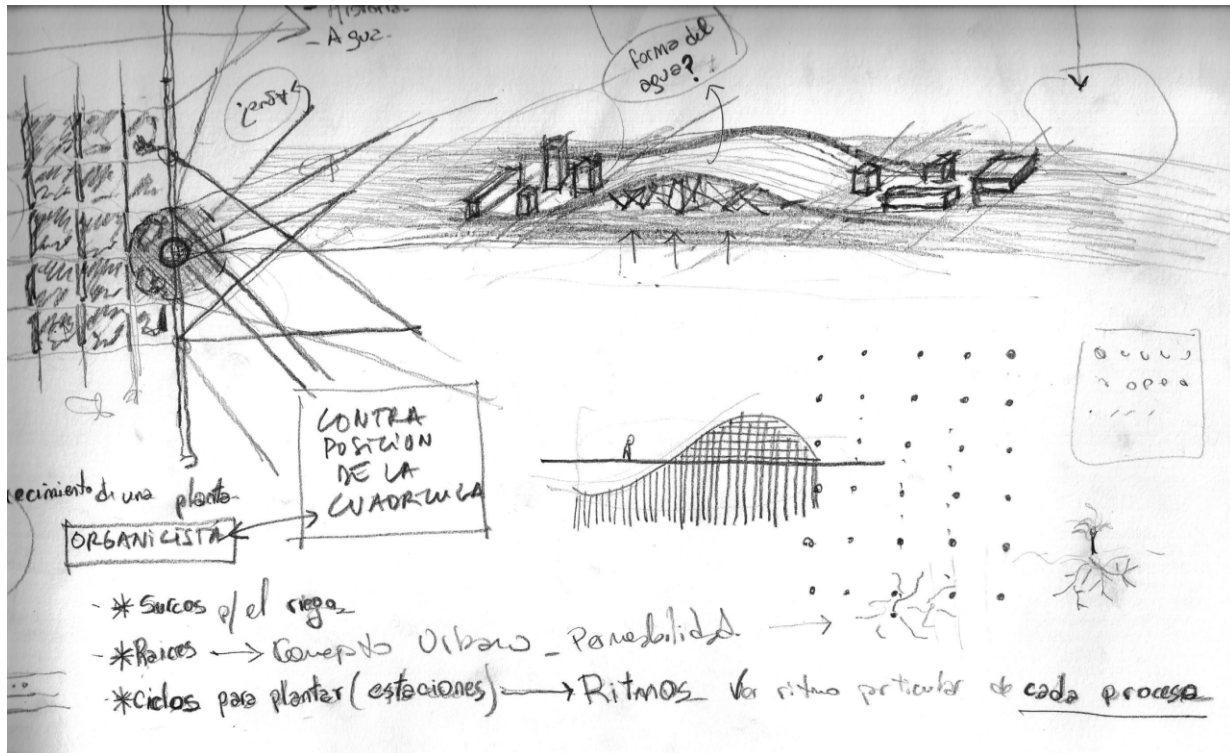 - Historia
- Agua.
forma del
agua?
CONTRA
POSICION
DE LA
CUADRICULA
de una planta
ORGANICISTA
- * Surcos p/ el riego
- * Raices → Concepto Urbano - Permeabilidad. →
- * Ciclos para plantar (estaciones) → Ritmos Ver ritmo particular de cada proceso